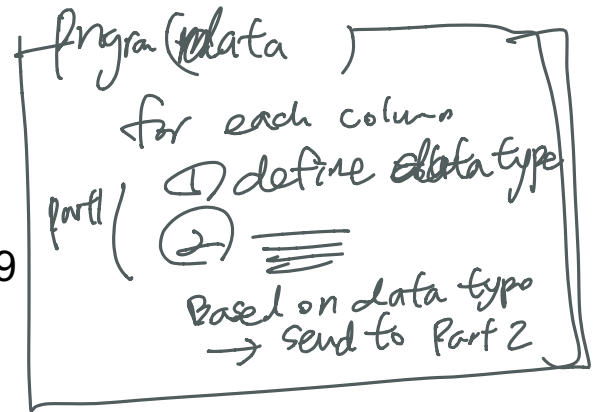 Program (data )
for each column
① define data type
part1 (
②
9
Based on data type
→ send to Part 2